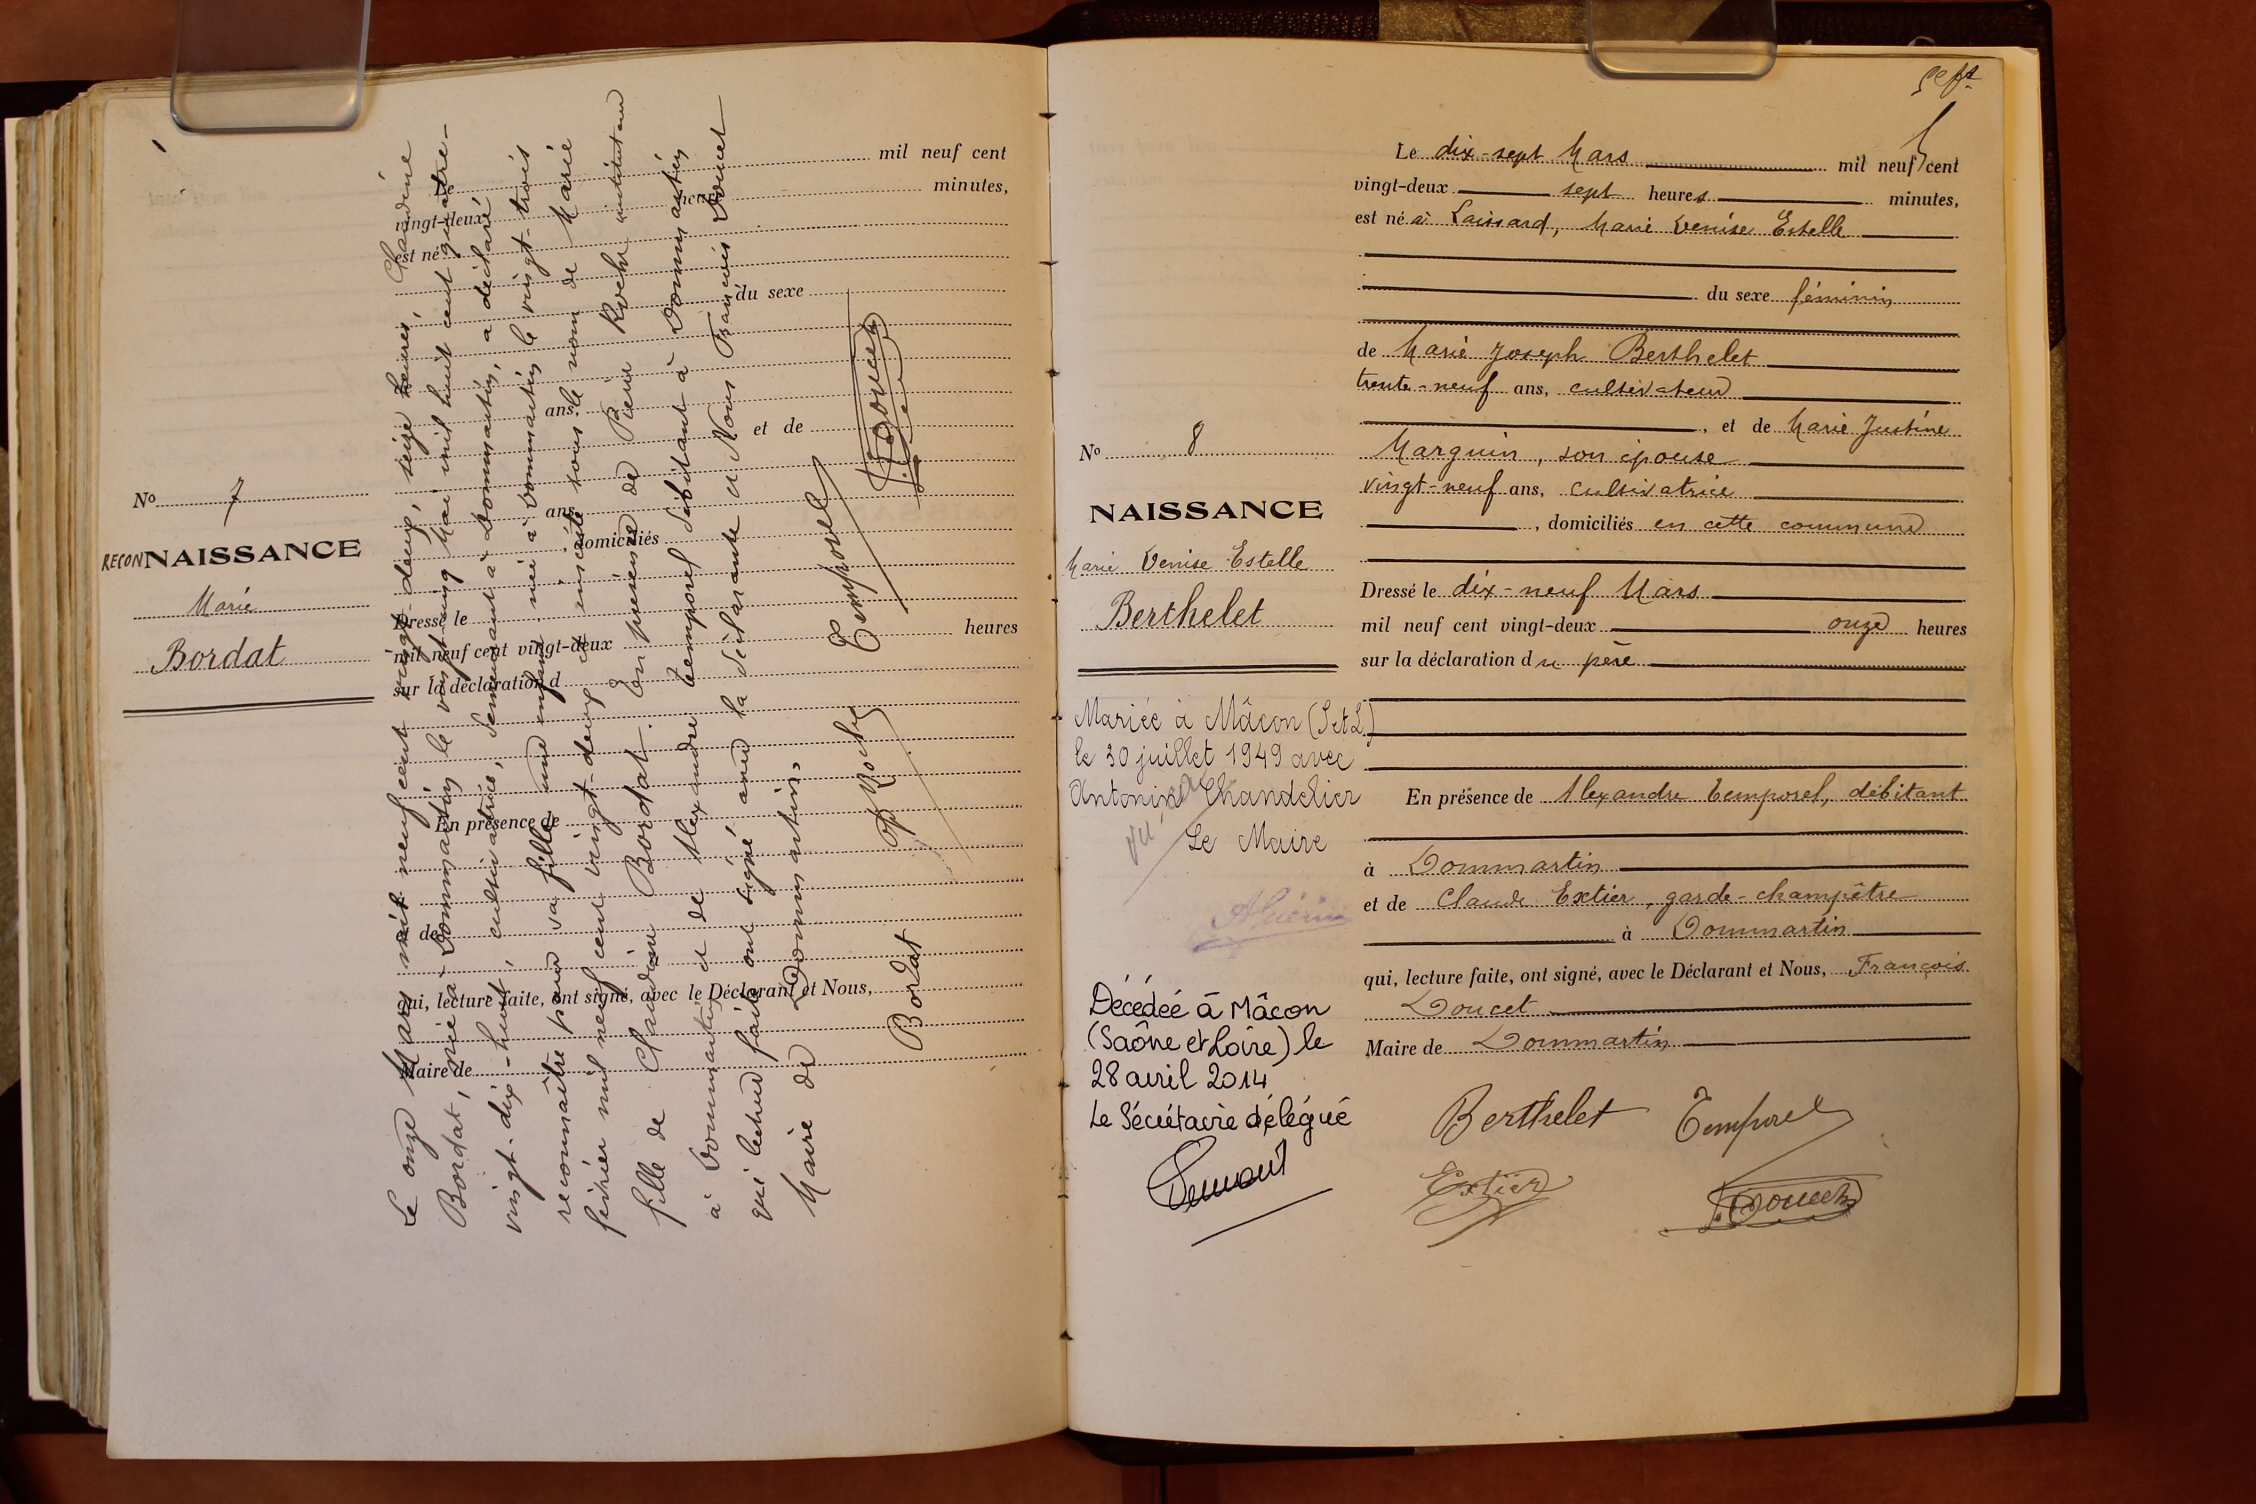 No 7
RECONNAISSANCE
Marie
Bordat
mil neuf cent
vingt-deux heures minutes,
est né
du sexe
ans.
et de
ans,
domiciliés
Dressé le
mil neuf cent vingt-deux heures
sur la déclaration d
En présence de
et de
qui, lecture faite, ont signé, avec le Déclarant et Nous,
Maire de
Le onze Mars mil neuf cent vingt-deux, seize heures, Claudine
Bordat, née à Dommartin le vingt-cinq Mai mil huit cent quatre-
vingt-dix-huit, cultivatrice, demeurant à Dommartin, a déclaré
reconnaître pour sa fille une enfant née à Dommartin le vingt-trois
février mil neuf cent vingt-deux et inscrite sous le nom de Marie
fille de Claudine Bordat. En présence de Pierre Roche instituteur
à Dommartin et de Alexandre Temporel débitant à Dommartin
qui lecture faite ont signé avec la déclarante et Nous François Doucet
Maire de Dommartin.
Bordat Roche Temporel Doucet
sept
No 8
NAISSANCE
Marie Denise Estelle
Berthelet
Mariée à Mâcon (S et L)
le 30 juillet 1949 avec
Antonin Chandelier
vu, Le Maire
Décédée à Mâcon
(Saône et Loire) le
28 avril 2014
Le Sécrétaire délégué
Le dix-sept Mars mil neuf cent
vingt-deux sept heures minutes,
est né à Laissard, Marie Denise Estelle
du sexe féminin
de Marie Joseph Berthelet
trente-neuf ans, cultivateur
, et de Marie Justine
Marguin, son épouse
vingt-neuf ans, cultivatrice
, domiciliés en cette commune
Dressé le dix-neuf Mars
mil neuf cent vingt-deux onze heures
sur la déclaration du père
En présence de Alexandre Temporel, débitant
à Dommartin
et de Claude Extier, garde-champêtre
à Dommartin
qui, lecture faite, ont signé, avec le Déclarant et Nous, François
Doucet
Maire de Dommartin
Berthelet Temporel
Extier Doucet